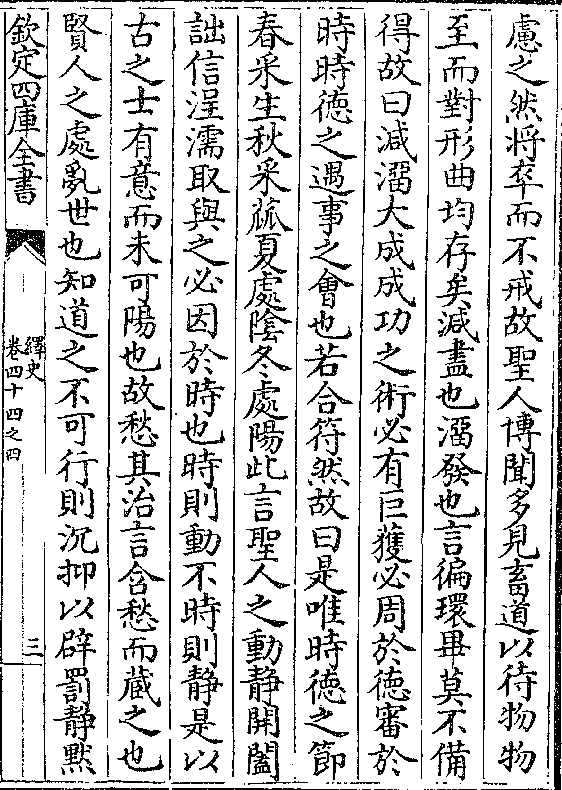 慮之然將卒而不戒故聖人博聞多見畜道以待物物
至而對形曲均存矣減盡也溜發也言徧環畢莫不備
得故曰減溜大成成功之術必有巨獲必周於徳審於
時時徳之遇事之會也若合符然故曰是唯時徳之節
春采生秋采蓏夏處陰冬處陽此言聖人之動静開闔
詘信浧濡取與之必因於時也時則動不時則静是以
古之士有意而未可陽也故愁其治言含愁而蔵之也
賢人之處亂世也知道之不可行則沉抑以辟罰静黙
欽定四庫全書
繹史
卷四十四之四
三